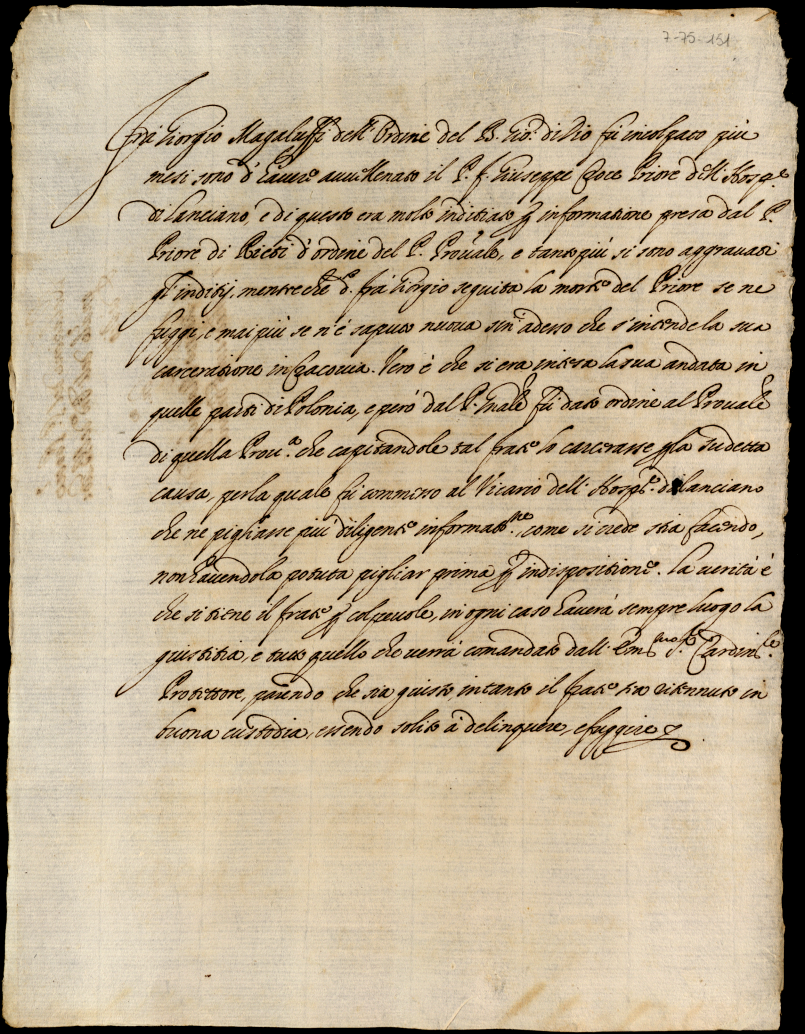 7-75-151
frà Giorgio Magaluffi dell'Ordine del B. Gio: di Dio fù incolpato più
mesi sono d'haver avvillenato il P. f. Giuseppe Croce Priore dell'Hosp.le
di Lanciano, e di questo era molto inditiato p informatione presa dal P.
Priore di Rieti d'ordine del P. Prov.ale, e tanto più si sono aggravati
gl'inditij, mentre che d.º frà Giorgio seguita la morte del Priore se ne
fuggi, e mai più se n'è saputo nuova sin'adesso che s'intende la sua
carceratione in Cracovia. Vero è che si era intesa la sua andata in
quelle parti di Polonia, e però dal P. Gnale fù dato ordine al Prov.ale
di quella Prov.a che capitandole tal frate lo carcerasse p la sudetta
causa, per la quale fù commesso al Vicario dell'Hosp.le di Lanciano
che ne pigliasse più diligente informat.ne, come si crede stia facendo,
non havendola potuta pigliar prima p indispositione. La verità è
che si tiene il frate p colpevole, in ogni caso haverà sempre luogo la
giustitia, e tutto quello che verrà comandato dall'Em.mo S.r Cardin.le
Protettore, parendo che sia giusto intanto il frate sia ritennuto in
buona custodia, essendo solito à delinquere, e fuggire